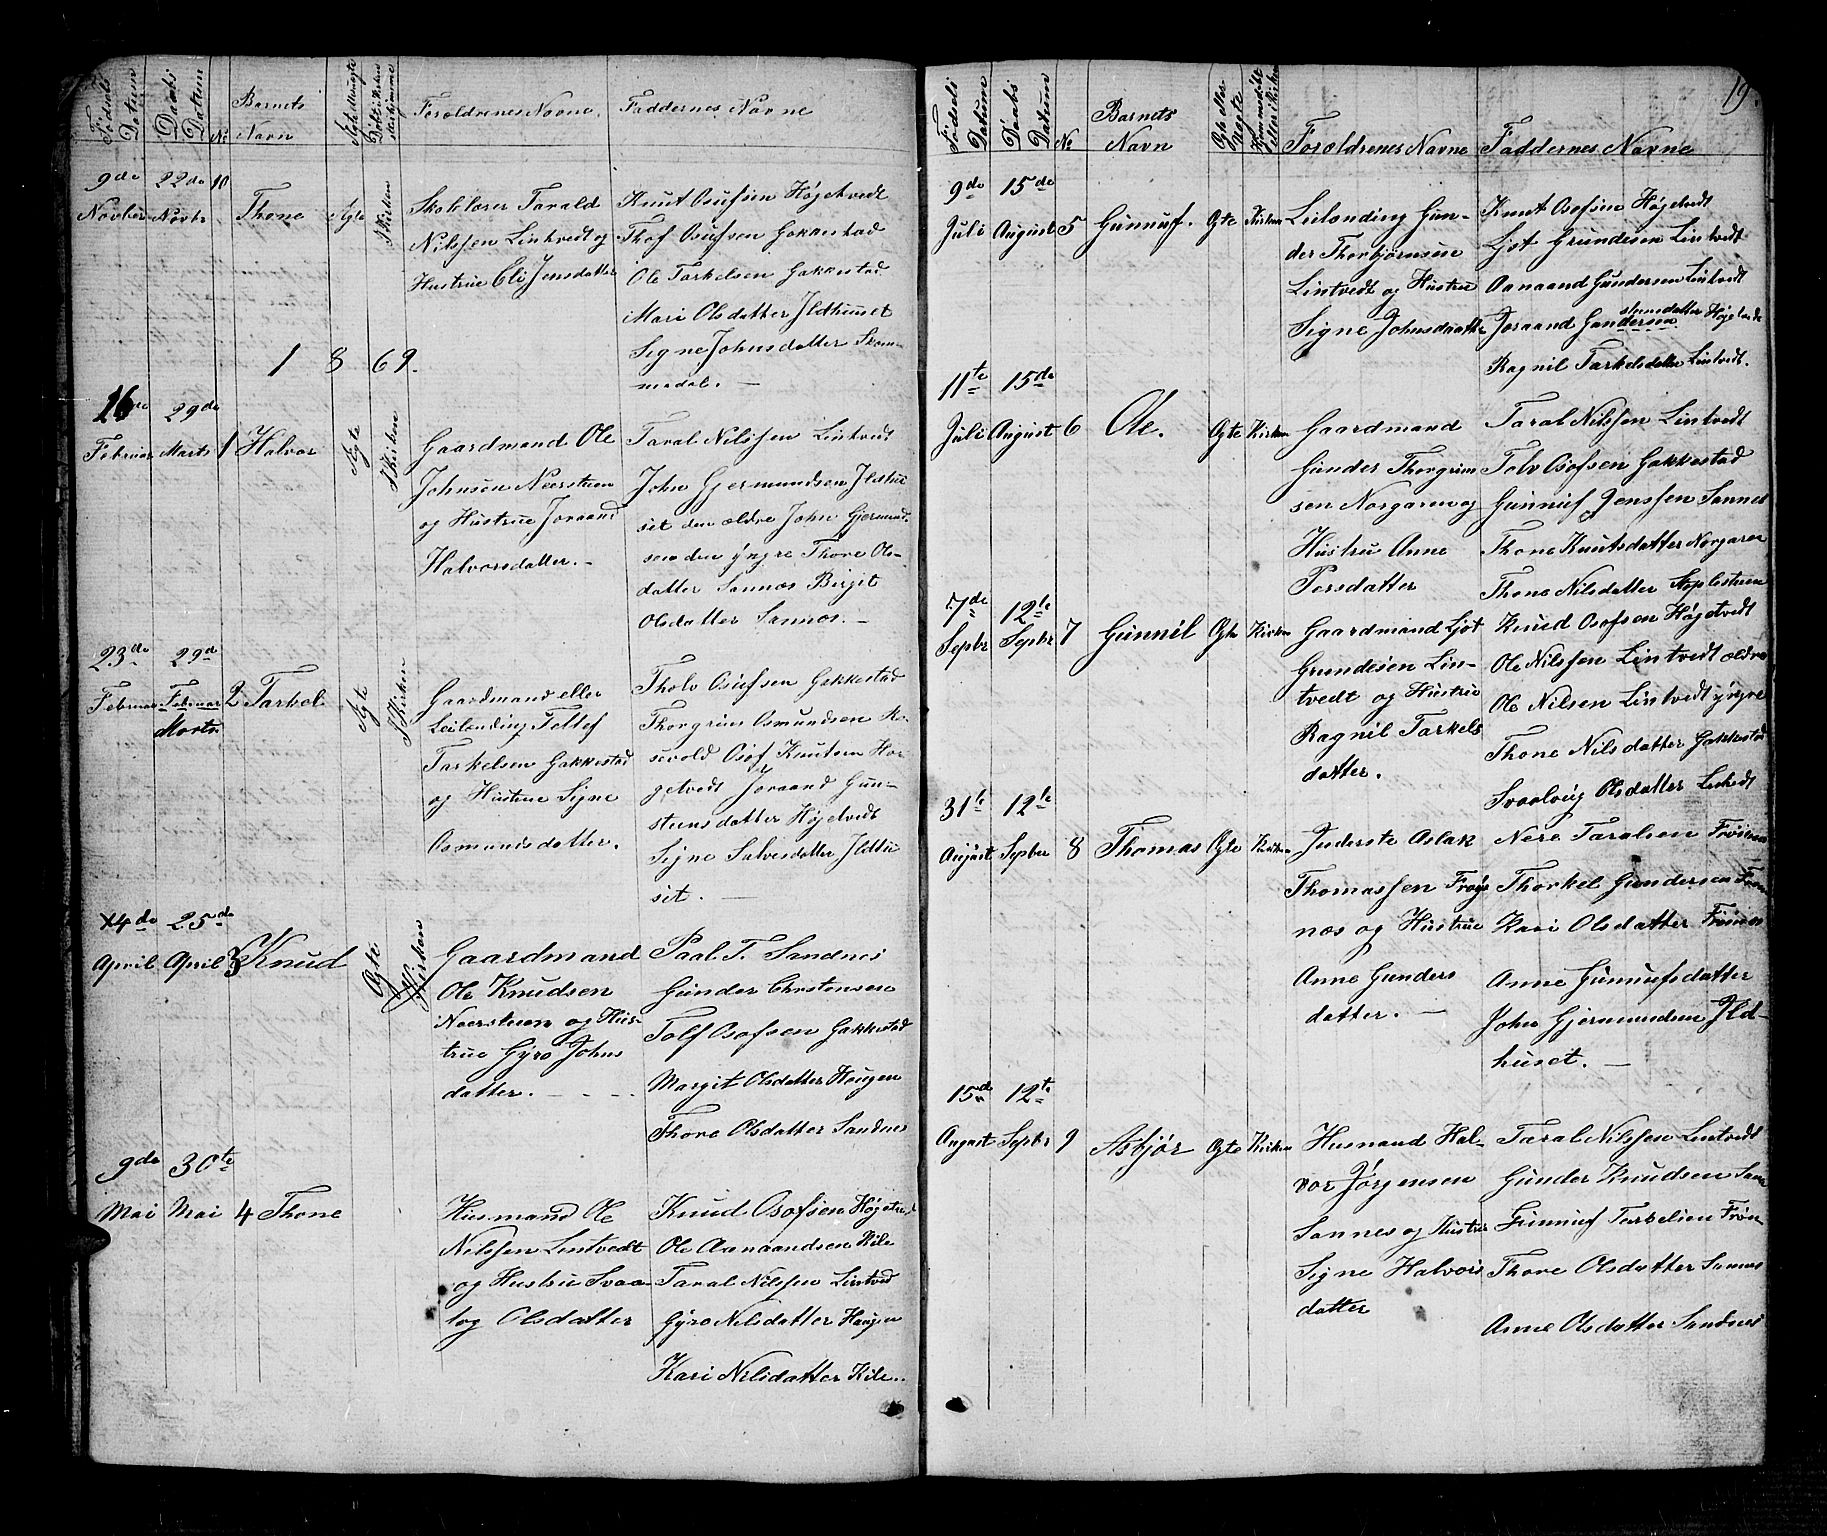 Fødsels Datum
Daabs Datum
No
Barnets Navn
Ægte eller uægte
Døbt i Kirken eller hjemme
Forældrenes Navne.
Faddernes Navne
9de Novber
22de Novbr
10
Thone
Ægte
I Kirken
Skolelærer Tarald
Nilssen Lintvedt og
Hustrue Eli Jensdatter
Knut Osufsen Høgetvedt
Thof Osufsen Gakkestad
Ole Tarkelsen Gakkestad
Mari Olsdatter Ildhuuset
Signe Johnsdatter Skom-
medal. —
1 8 69.
16de Februar
29de Marts
1
Halvor
Ægte
I Kirken
Gaardmand Ole
Johnsen Neerstuen
og Hustrue Joraand
Halvorsdatter. -
Taral Nilssen Lintvedt
John Gjermundsen Ildhu-
set den ældre John Gjermund-
sen den yngre Thore Ols-
datter Sannes Birgit
Olsdatter Sannes. —
23de Februar
29d Februar
Marts
2
Tarkel
Ægte
I Kirken
Gaardmand eller
Leilending Tollef
Tarkelsen Gakkestad
og Hustrue Signe
Osmundsdatter.
Tholv Osufsen Gakkestad
Thorgrim Osmundsen Ro-
sevold Osof Knutsen Hø-
getvedt Joraand Gun-
steensdatter Høgetvedt
Signe Salvesdatter Ildhu
set. —
4de April
25de April
3
Knud
Ægte
Kirken
Gaardmand
Ole Knudsen
Neerstuen og Hus-
true Gyro Johns
datter. - - - -
Paal T. Sandnes
Gunder Christensen
Tolf Osofsen Gakkestad
Margit Olsdatter Haugen
Thore Olsdatter Sandnes
9de Mai
30te Mai
4
Thone
Husmand Ole
Nilssen Lintvedt
og Hustru Svaa-
log Olsdatter
Knud Osofsen Høgetvedt
Ole Aanaandsen Kile
Taral Nilssen Lintved
Gyro Nilsdatter Haugen
Kari Nilsdatter Kile.
19.
Fødsels Datum
Daabs Datum
No
Barnets Navn
Ægte eller Uægte
Hjemmedøbt eller i Kirken
Forældrenes Navne
Faddernes Navne
9de Juli
15de August
5
Gunnuf.
Ægte
Kirken
Leilænding Gun-
der Thorbjørnsen
Lintvedt og Hustrue
Signe Johnsdaatter
Knut Osofsen Høgetvedt
Ljot Grundesen Lintvedt
Aanaand Gundersen Lintvedt
Joraand Gundersen steensdatter Høgetvedt
Ragnil Tarkelsdatter Lintvedt.
11te Juli
15de August
6
Ole.
Ægte
Kirken
Gaardmand
Gunder Thorgrim
sen Norgaren og
Hustru Anne
Persdatter
Taral Nilssen Lintvedt
Tolv Osofsen Gakkestad
Gunnuf Jenssen Sannes
Thone Knutsdatter Norgaren
Thone Nilsdatter
7de Septbr
12te Septbr
7
Gunnil
Ægte
Kirken
Gaardmand Ljot
Grundesen Lin-
tvedt og Hustrue
Ragnil Tarkels
datter.
Knud Osofsen Høgetvedt
Ole Nilssen Lintvedt ældre
Ole Nilsen Lintvedt yngre
Thone Nilsdatter Gakkestad
Svaalvig Olsdatter Lintvedt
31te August
12te Septbr
8
Thomas
Ægte
Kirken
Inderste Aslak
Thomassen Frøys
nes og Hustrue
Anne Gunders
datter. —
Nere Taralsen Frøisnes
Thorkel Gundersen
Kari Olsdatter Frøisnes
Anne Gunnufsdatter
John Gjermundsen Ild-
huset. —
15de August
12te Septbr
9
Asbjør
Ægte
Kirken
Husmand Hal-
vor Jørgensen
Sannes og Hustru
Signe Halvors
datter
Taral Nilssen Lintvedt
Gunder Knudsen
Gunnuf Tarkelsen
Thore Olsdatter Sannes
Anne Olsdatter Sandnes